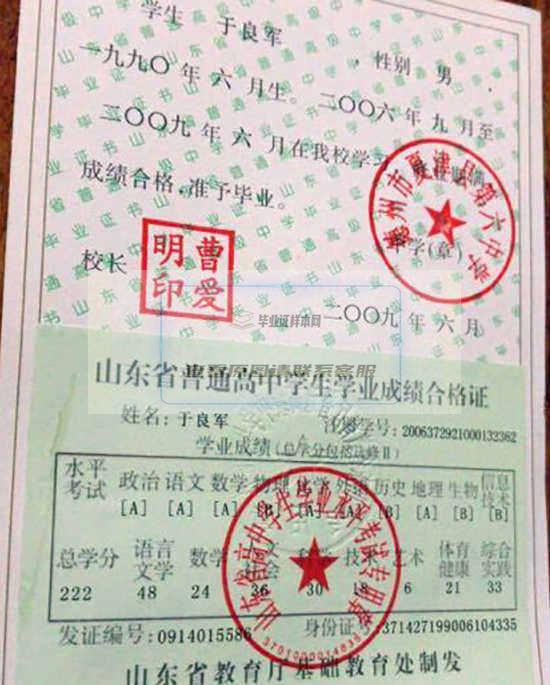 学生 于良军 性别 男
一九九〇 年 六 月生。二〇〇六 年 九 月至
二〇〇九 年 六 月在我校学习
成绩合格,准予毕业。
德州市夏津县第六中学
校长
曹爱明印
学(章)
二〇〇九 年 六 月
毕业证样本网
查看原图请联系客服
山东省普通高中学生学业成绩合格证
姓名:于良军 学号:2006372921000132362
学业成绩(总学分包括选修Ⅱ)
水平考试 政治 语文 数学 物理 化学 历史 地理 生物 信息技术
[A] [A] [A] [B] [B] [A] [B] [B]
总学分 语言文学 数学 技术 艺术 体育健康 综合实践
222 48 24 36 30 18 6 21 33
山东省高中学生学业水平考试专用章
发证编号:0914015586 身份证号:371427199006104335
山东省教育厅基础教育处制发